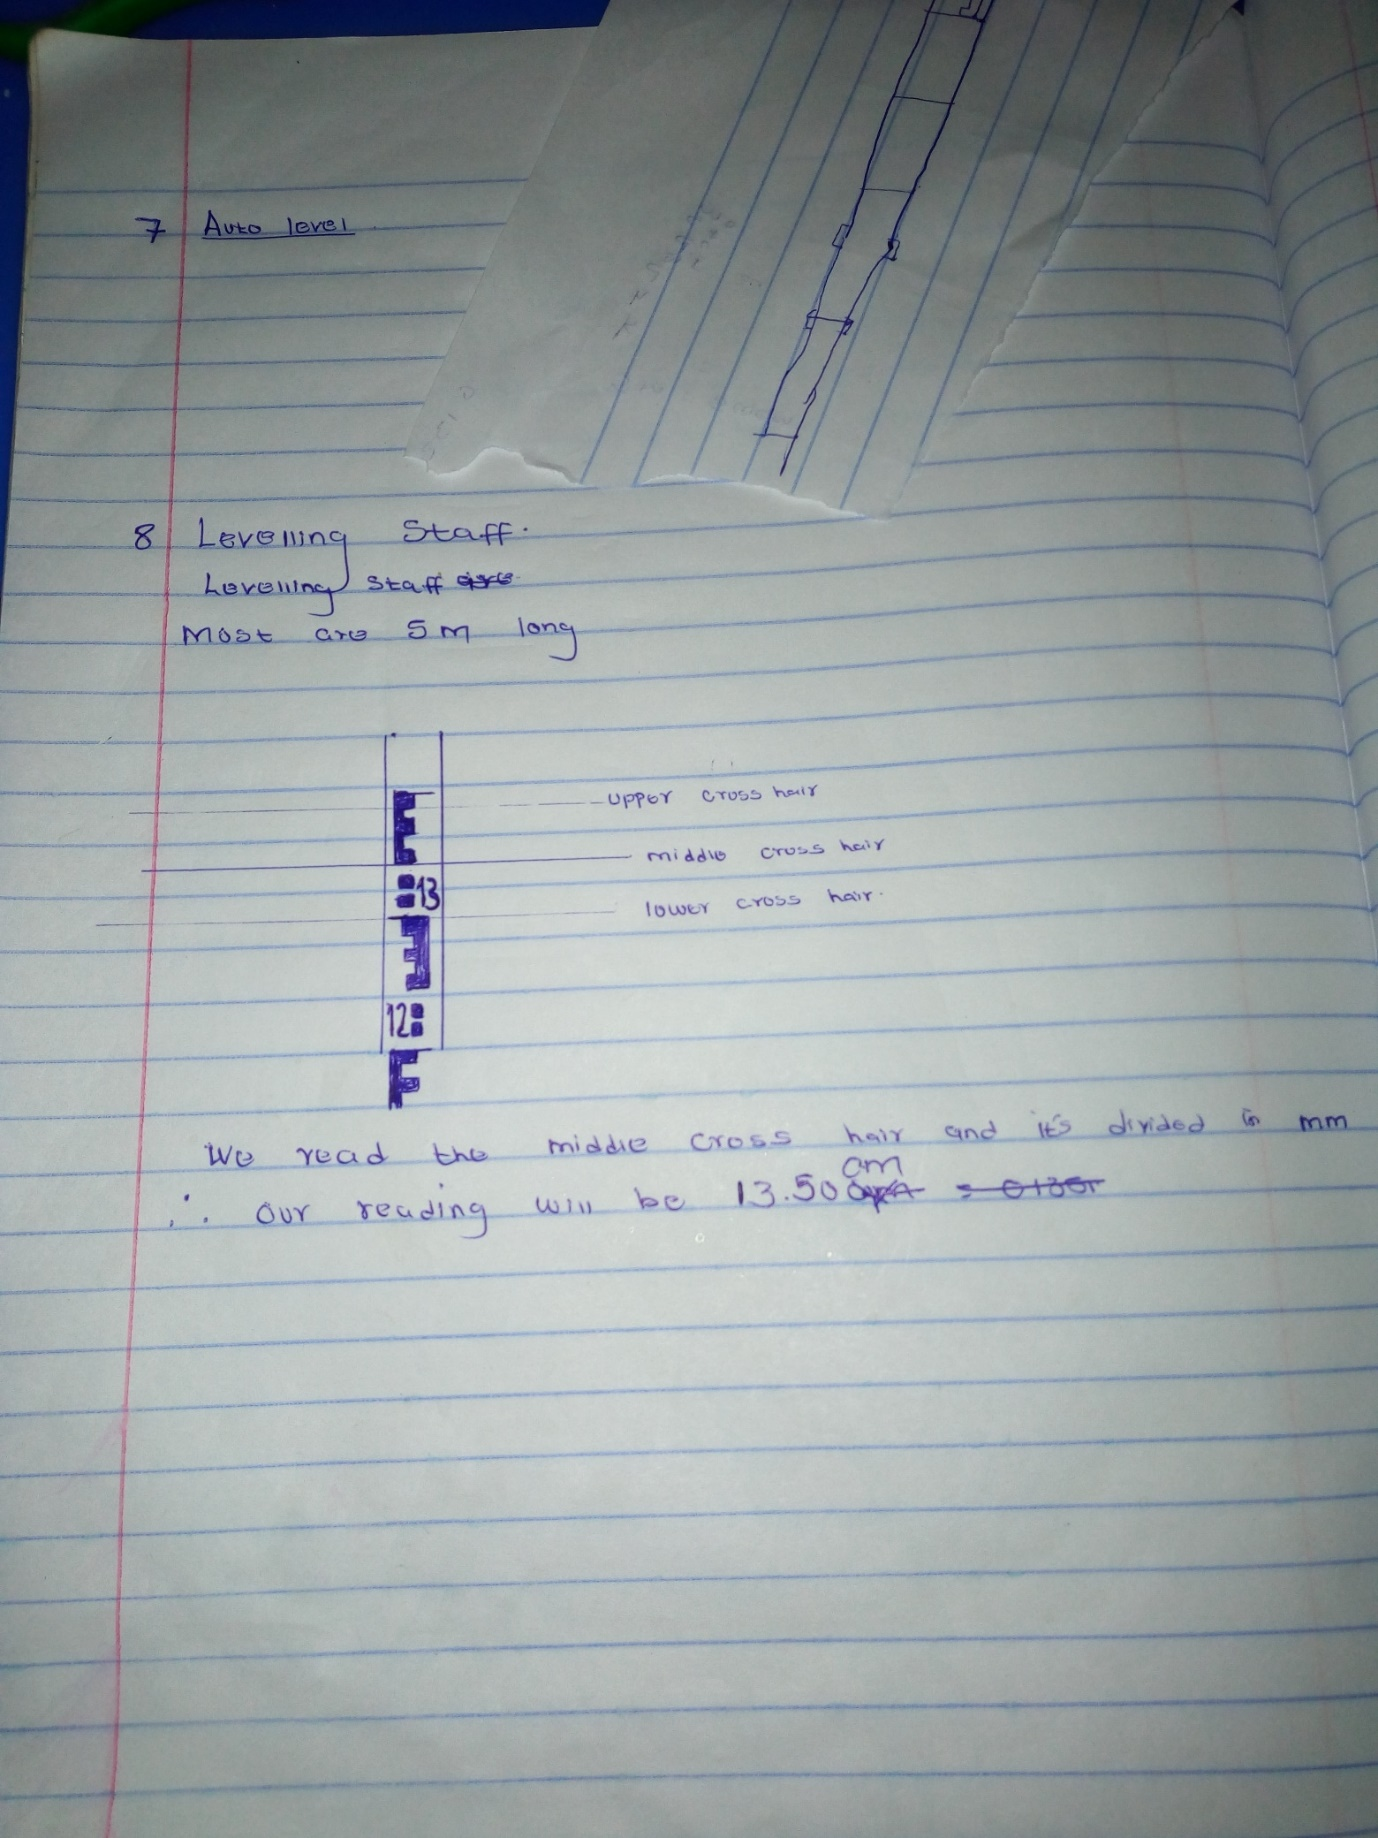 7 Auto level
8 Levelling Staff.
Levelling staff
Most are 5m long
upper cross hair
middle cross hair
13
lower cross hair.
12
We read the middle cross hair and it's divided in mm
∴ our reading will be 13.50 cm